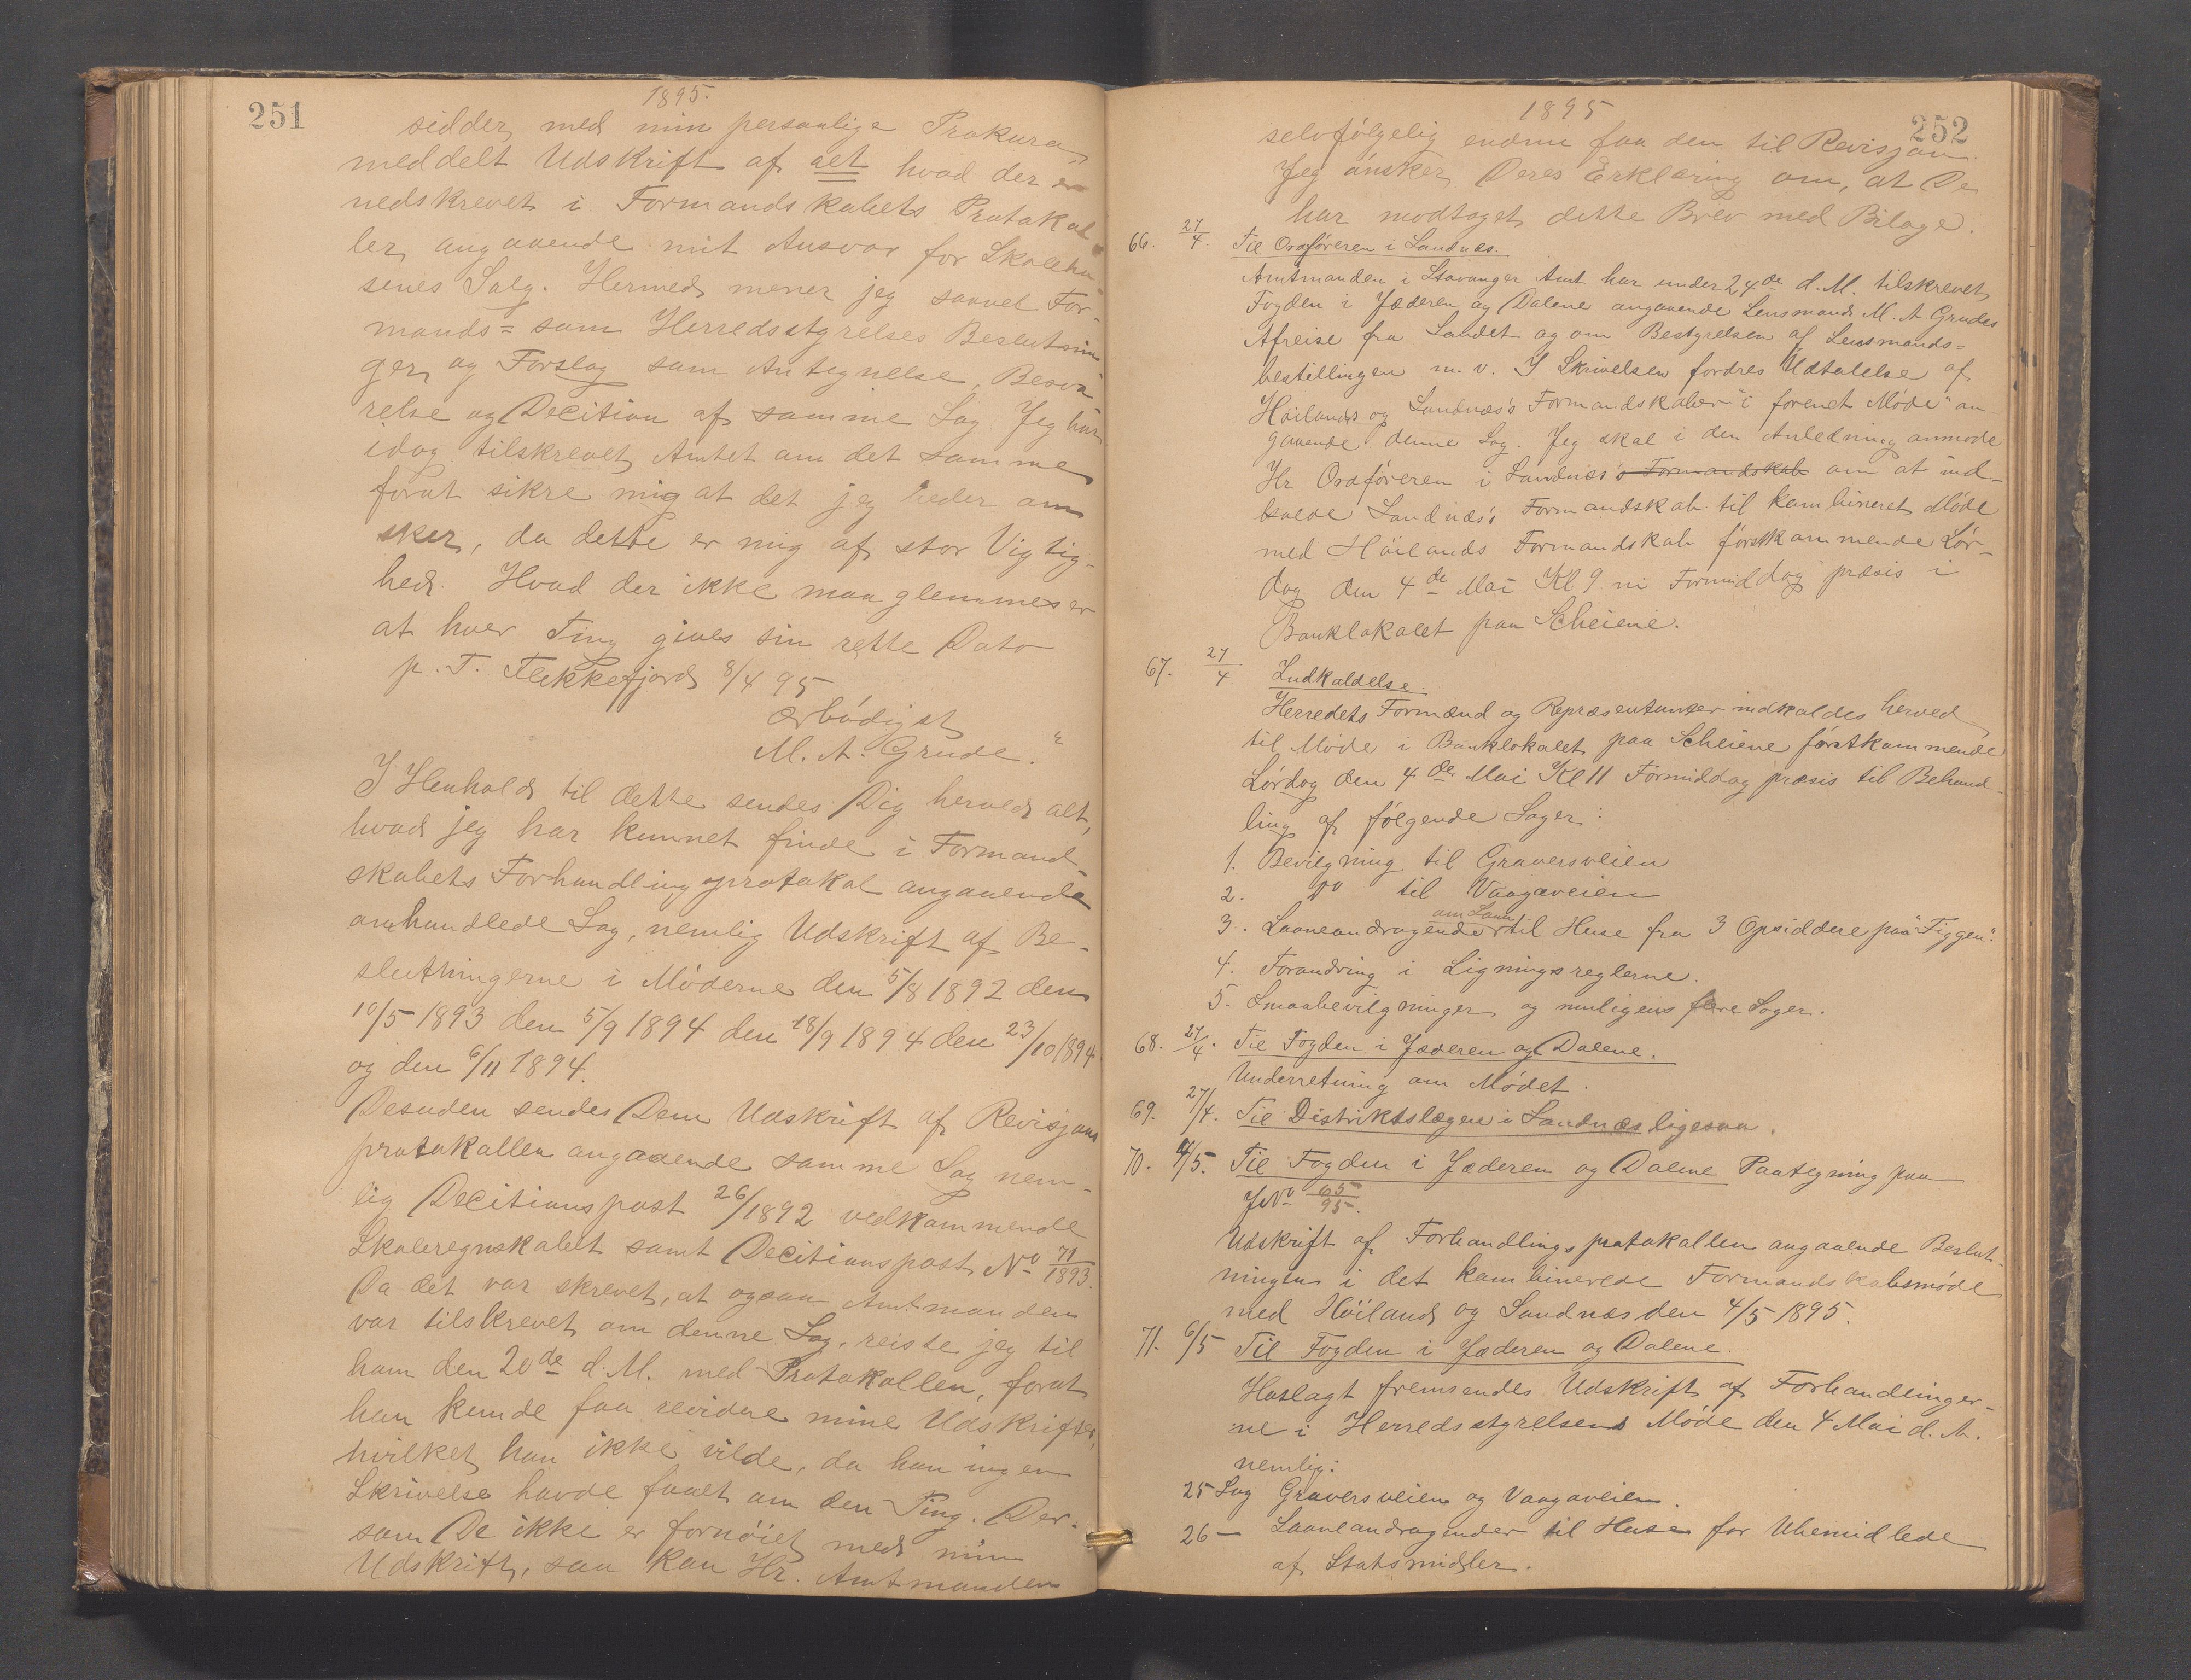 251
1895.
sidder, med min personlige Prokura,
meddelt Udskrift af alt hvad der er
nedskrevet i Formandskabets Protokol-
ler, angaaende mit Ansvar for Skolehu-
senes Salg. Hermed mener jeg saavel For-
mands= som Herredsstyrelses Beslutnin-
ger, og Forslag som Antegnelse, Besva-
relse og Decition af samme Sag. Jeg har
idag tilskrevet Amtet om det samme
forat sikre mig at det jeg beder om
sker, da dette er mig af stor Vigtig-
hed. Hvad der ikke maa glemmes er
at hver Ting gives sin rette Dato
p. T. Flekkefjord 8/4 95
Ærbödigst
M. A. Grude."
I Henhold til dette sendes Dig herved alt,
hvad jeg har kunnet finde i Formand-
skabets Forhandlingsprotokol angaaende
omhandlede Sag, nemlig Udskrift af Be-
slutningerne i Möderne den 5/8 1892 den
10/5 1893 den 5/9 1894 den 18/9 1894 den 23/10 1894
og den 6/11 1894.
Desuden sendes Dem Udskrift af Revisjons
protokollen angaaende samme Sag nem-
lig Decitionspost 26/1892 vedkommende
Skoleregnskabet samt Decitionspost No 71/1893.
Da det var skrevet, at ogsaa Amtmanden
var tilskrevet om denne Sag, reiste jeg til
ham den 20de d. M. med Protokollen, forat
han kunde faa revidere mine Udskrifter,
hvilket han ikke vilde, da han ingen
Skrivelse havde faaet om den Ting. Der-
som De ikke er fornöiet med min
Udskrift, saa kan Hr. Amtmanden
252
1895
selvfölgelig endnu faa den til Revisjon.
Jeg önsker Deres Erklæring om, at De
har modtaget dette Brev med Bilage.
66. 27/4. Til Ordföreren i Sandnes.
Amtmanden i Stavanger Amt har under 24de d. M. tilskrevet
Fogden i Jæderen og Dalene angaaende Lensmand M. A. Grudes
Afreise fra Landet og om Bestyrelsen af Lensmands=
bestillingen m. v. I Skrivelsen fordres Udtalelse af
Höilands og Sandnæs's Formandskaber "i forenet Möde" an-
gaaende denne Sag. Jeg skal i den Anledning anmode
Hr Ordföreren i Sandnæs's Formandskab om at ind-
kalde Sandnæs's Formandskab til kombineret Möde
med Höilands Formandskab förstkommende Lör-
dag den 4de Mai Kl 9 ni Formiddag præsis i
Banklokalet paa Scheiene.
67. 27/4. Indkaldelse.
Herredets Formænd og Repræsentanter indkaldes herved
til Möde i Banklokalet paa Scheiene förstkommende
Lördag den 4de Mai Kl 11 Formiddag præsis til Behand-
ling af fölgende Sager:
1. Bevilgning til Graversveien
2. Do til Vaagaveien
3. Laaneandragender om Laan til Huse fra 3 Opsiddere paa "Figgen".
4. Forandring i Ligningsreglerne.
5. Smaabevilgninger og muligens flere Sager.
68. 27/4. Til Fogden i Jæderen og Dalene.
Underretning om Mödet.
69. 27/4. Til Distriktslægen i Sandnæs ligesaa.
70. 4/5. Til Fogden i Jæderen og Dalene Paategning paa
JNo 65/95.
Udskrift af Forhandlingsprotokollen angaaende Beslut-
ningen i det kombinerede Formandskabsmöde
med Höiland og Sandnæs den 4/5 1895.
71. 6/5 Til Fogden i Jæderen og Dalene.
Hoslagt fremsendes Udskrift af Forhandlinger-
ne i Herredsstyrelsens Möde den 4 Mai d. A.
nemlig:
25 Sag Graversveien og Vaagaveien.
26 — Laaneandragender til Huse for Ubemidlede
af Statsmidler.